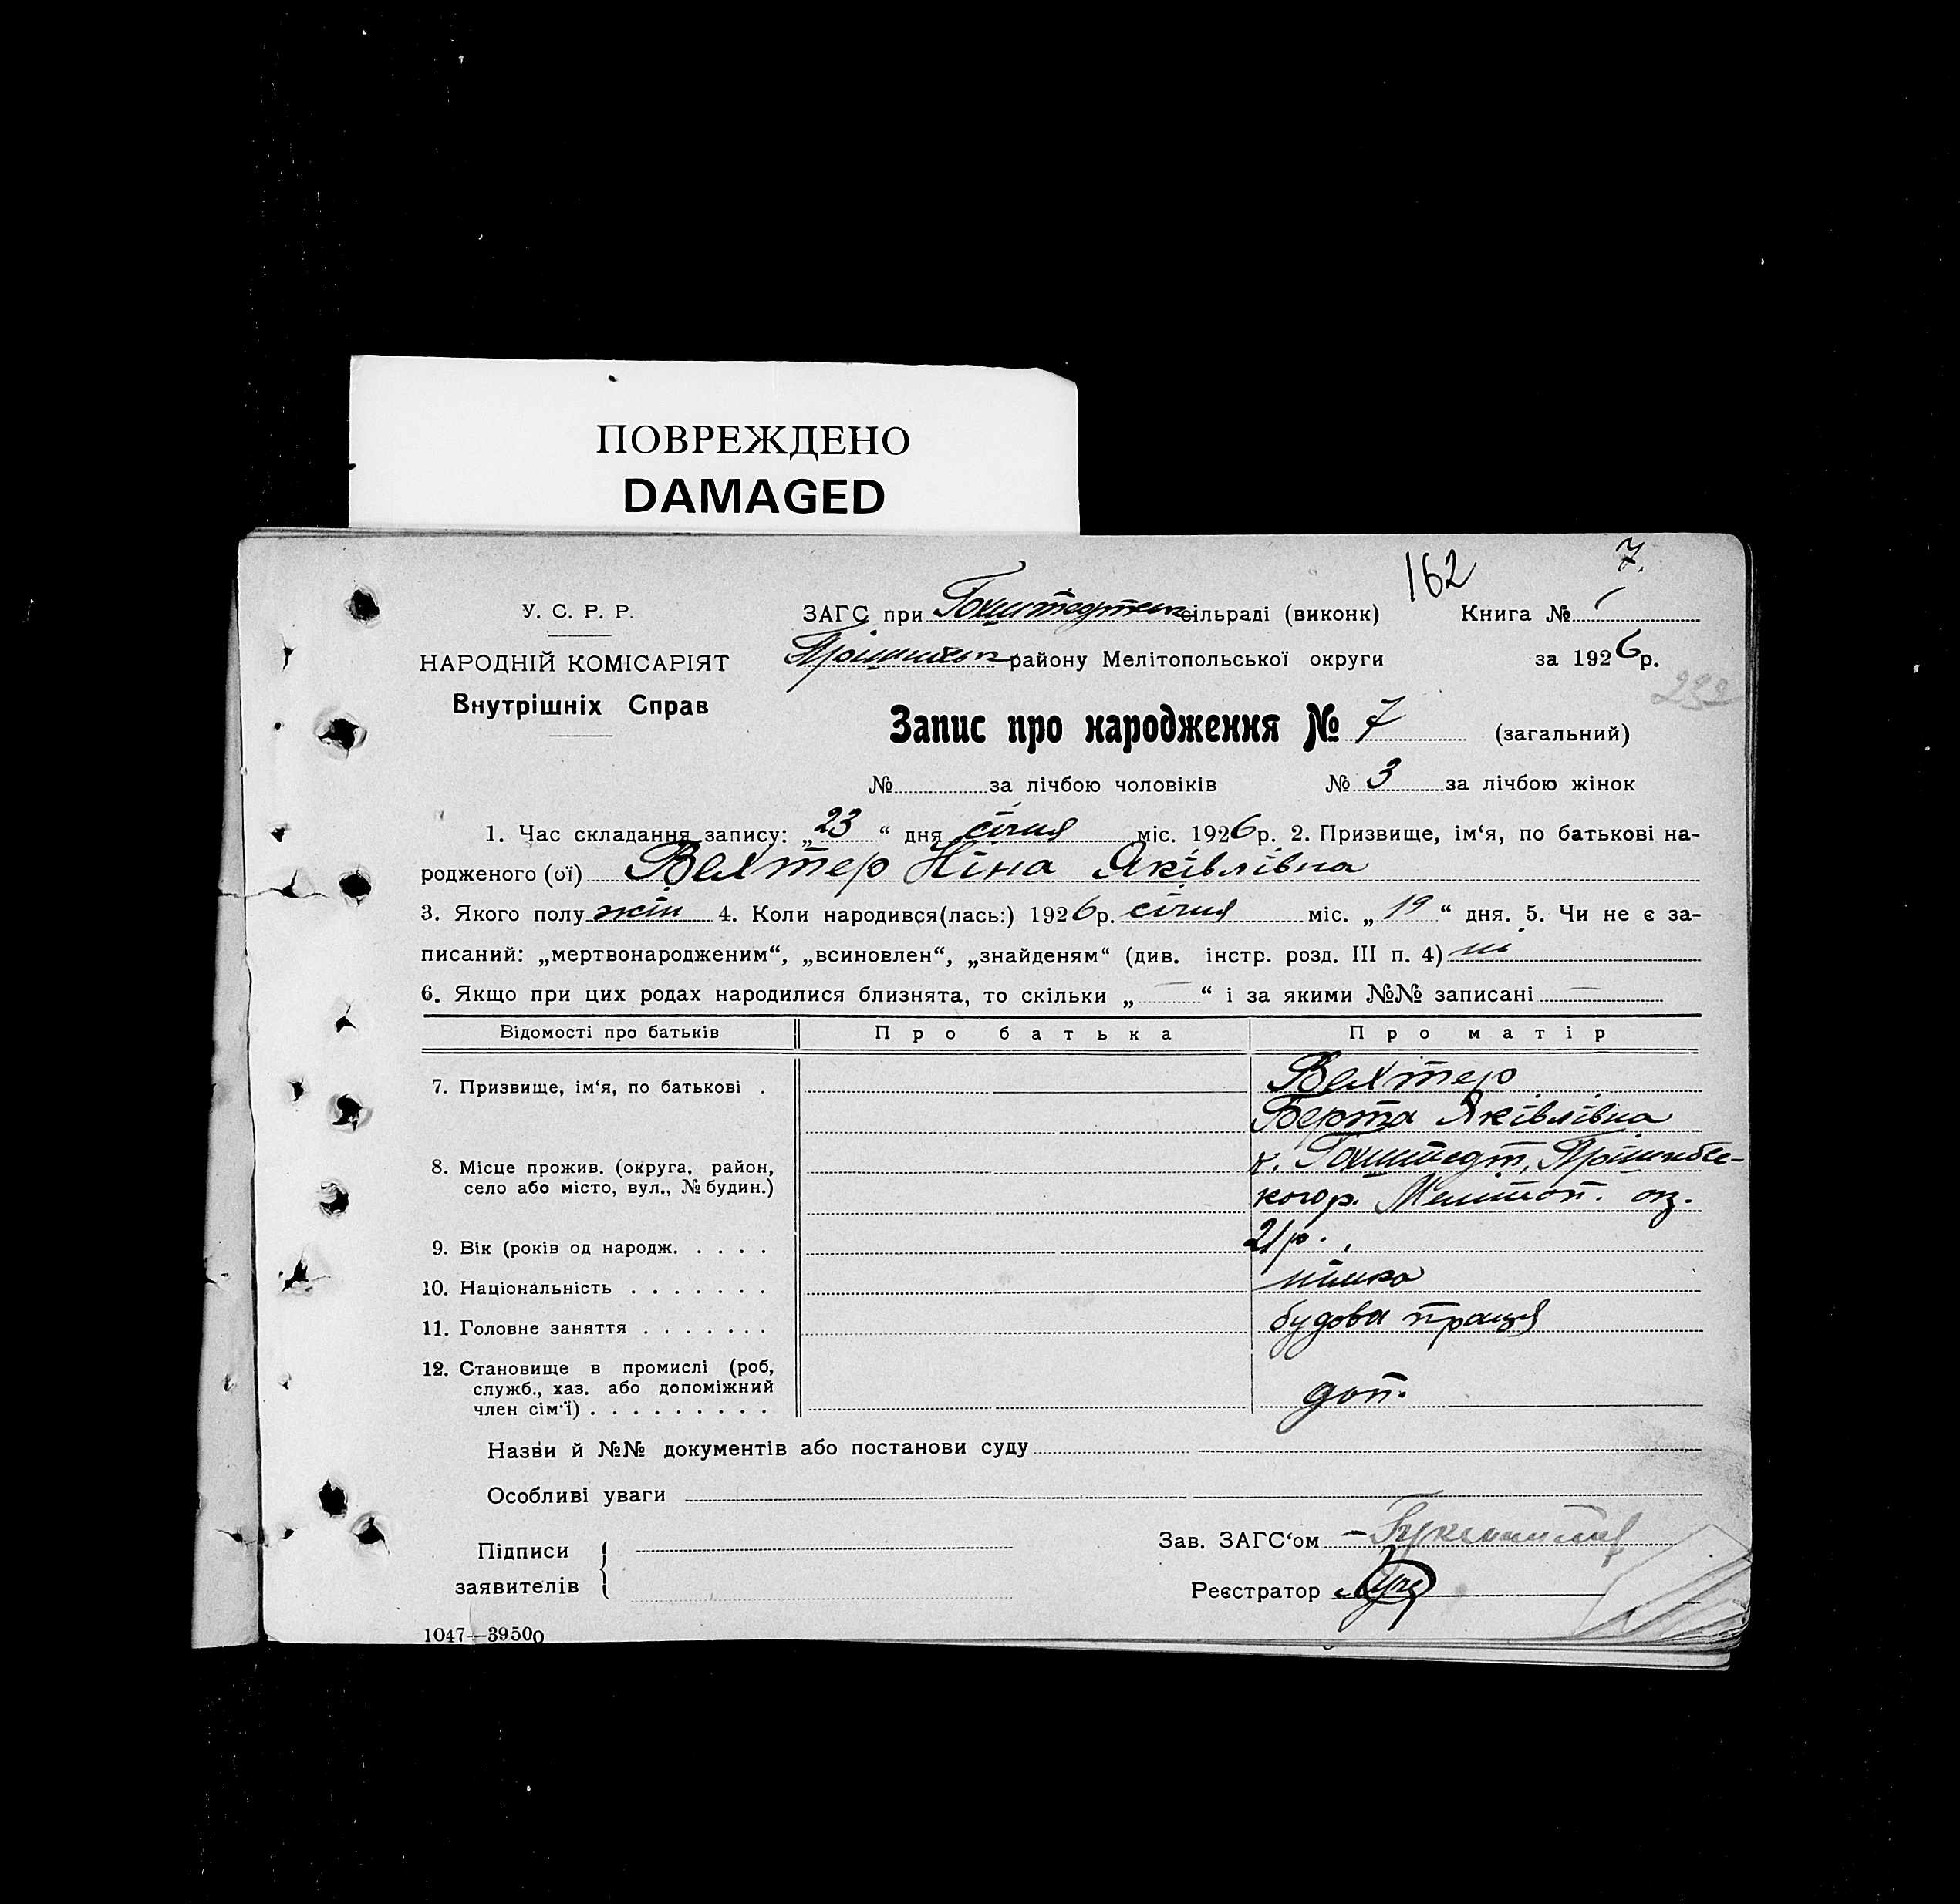 ПОВРЕЖДЕНО
DAMAGED
162 7.
У. С. Р. Р. ЗАГС при Гохштедтськ. сільраді (виконк) Книга №
НАРОДНІЙ КОМІСАРІЯТ району Мелітопольської округи за 1926р.
232
Внутрішніх Справ
Запис про народження № 7 (загальний)
№ за лічбою чоловіків № 3 за лічбою жінок
1. Час складання запису: „23“ дня січня міс. 1926р. 2. Призвище, ім‘я, по батькові на-
родженого (ої) Вехтер Ніна Яківлівна
3. Якого полу жін 4. Коли народився(лась:) 1926р. січня міс. „19“ дня. 5. Чи не є за-
писаний: „мертвонародженим“, „всиновлен“, „знайденям“ (див. інстр. розд. III п. 4) ні
6. Якщо при цих родах народилися близнята, то скільки „—“ і за якими №№ записані —
Відомості про батьків Про батька Про матір
7. Призвище, ім‘я, по батькові . Вехтер
Берта Яківлівна
8. Місце прожив. (округа, район, к. Гохштедт, Прішибсь-
село або місто, вул., № будин.) когор. Мелітоп. окр.
9. Вік (років од народж. . . . . 21 р.
10. Національність . . . . . . . німка
11. Головне заняття . . . . . . . будова праця
12. Становище в промислі (роб,
служб., хаз. або допоміжний доп.
член сім‘ї) . . . . . . . . .
Назви й №№ документів або постанови суду
Особливі уваги
Підписи Зав. ЗАГС‘ом
заявителів Реєстратор
1047—39500